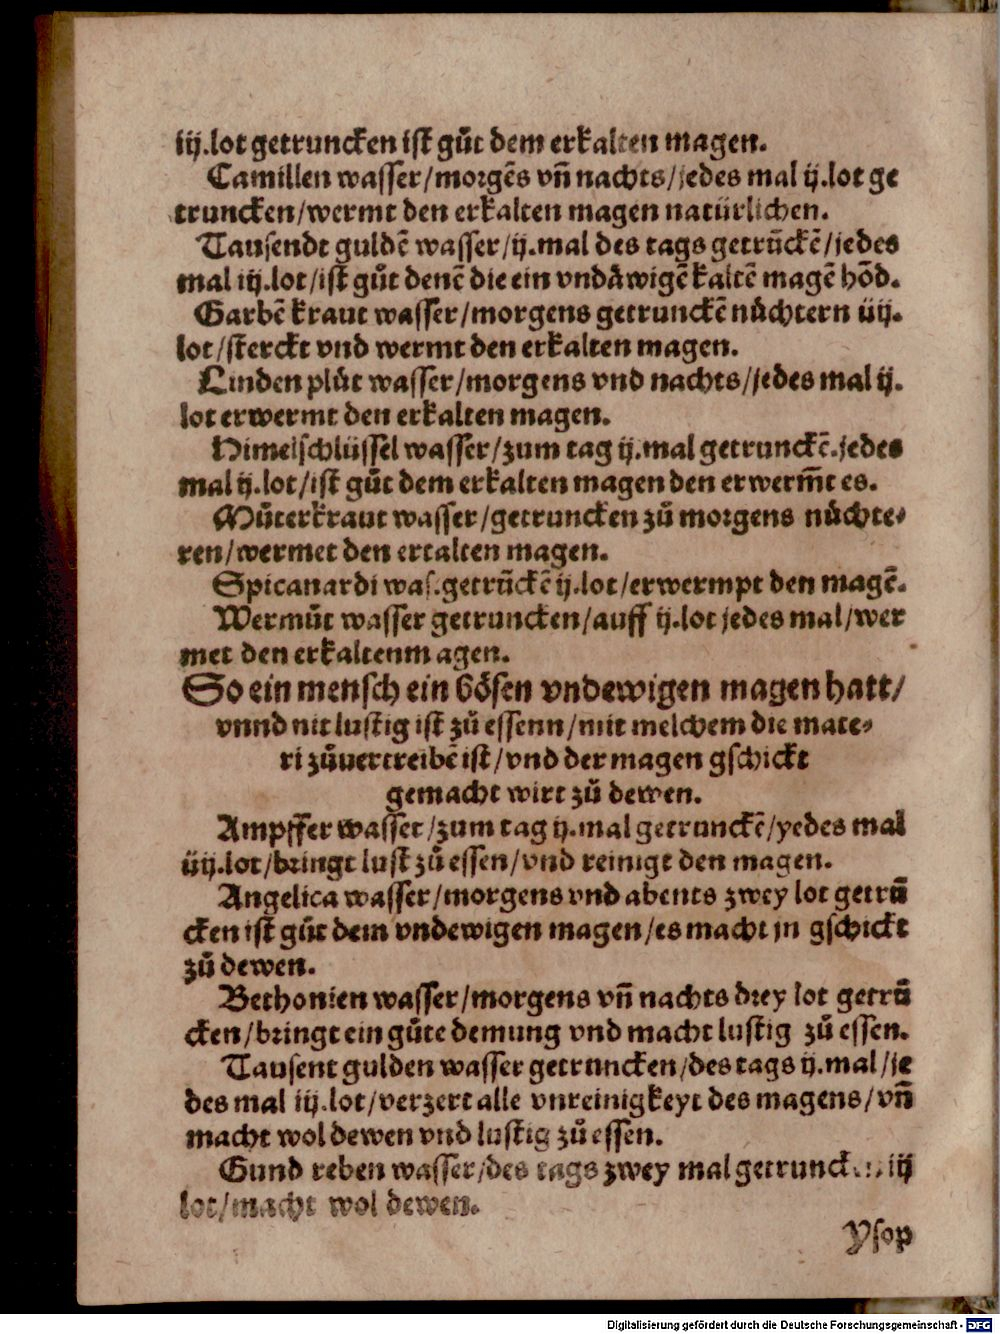 iij.lot getruncken ist gůt dem erkalten magen.
Camillen wasser/morgēs vñ nachts/jedes mal ij.lot ge
truncken/wermt den erkalten magen natürlichen.
Tausendt guldē wasser/ij.mal des tags getrūckē/jedes
mal iij.lot/ist gůt denē die ein vndåwigē kaltē magē hōd.
Garbē kraut wasser/morgens getrunckē nůchtern iiij.
lot/sterckt vnd wermt den erkalten magen.
Linden plůt wasser/morgens vnd nachts/jedes mal ij.
lot erwermt den erkalten magen.
Himelschlüssel wasser/zum tag ij.mal getrunckē.jedes
mal ij.lot/ist gůt dem erkalten magen den erwerm̄t es.
Můterkraut wasser/getruncken zů morgens nůchte-
ren/wermet den ertalten magen.
Spicanardi was.getrūckē ij.lot/erwermpt den magē.
Wermůt wasser getruncken/auff ij.lot jedes mal/wer
met den erkaltenm agen.
So ein mensch ein bösen vndewigen magen hatt/
vnnd nit lustig ist zů essenn/mit melchem die mate-
ri zůuertreibē ist/vnd der magen gschickt
gemacht wirt zů dewen.
Ampffer wasser/zum tag ij.mal getrunckē/yedes mal
iiij.lot/bringt lust zů essen/vnd reinigt den magen.
Angelica wasser/morgens vnd abents zwey lot getrū
cken ist gůt dem vndewigen magen/es macht jn gschickt
zů dewen.
Bethonien wasser/morgens vñ nachts drey lot getrū
cken/bringt ein gůte demung vnd macht lustig zů essen.
Tausent gulden wasser getruncken/des tags ij.mal/je
des mal iij.lot/verzert alle vnreinigkeyt des magens/vñ
macht wol dewen vnd lustig zů essen.
Gund reben wasser/des tags zwey mal getrunck iij
lot/macht wol dewen.
Ysop
Digitalisierung gefördert durch die Deutsche Forschungsgemeinschaft - DFG